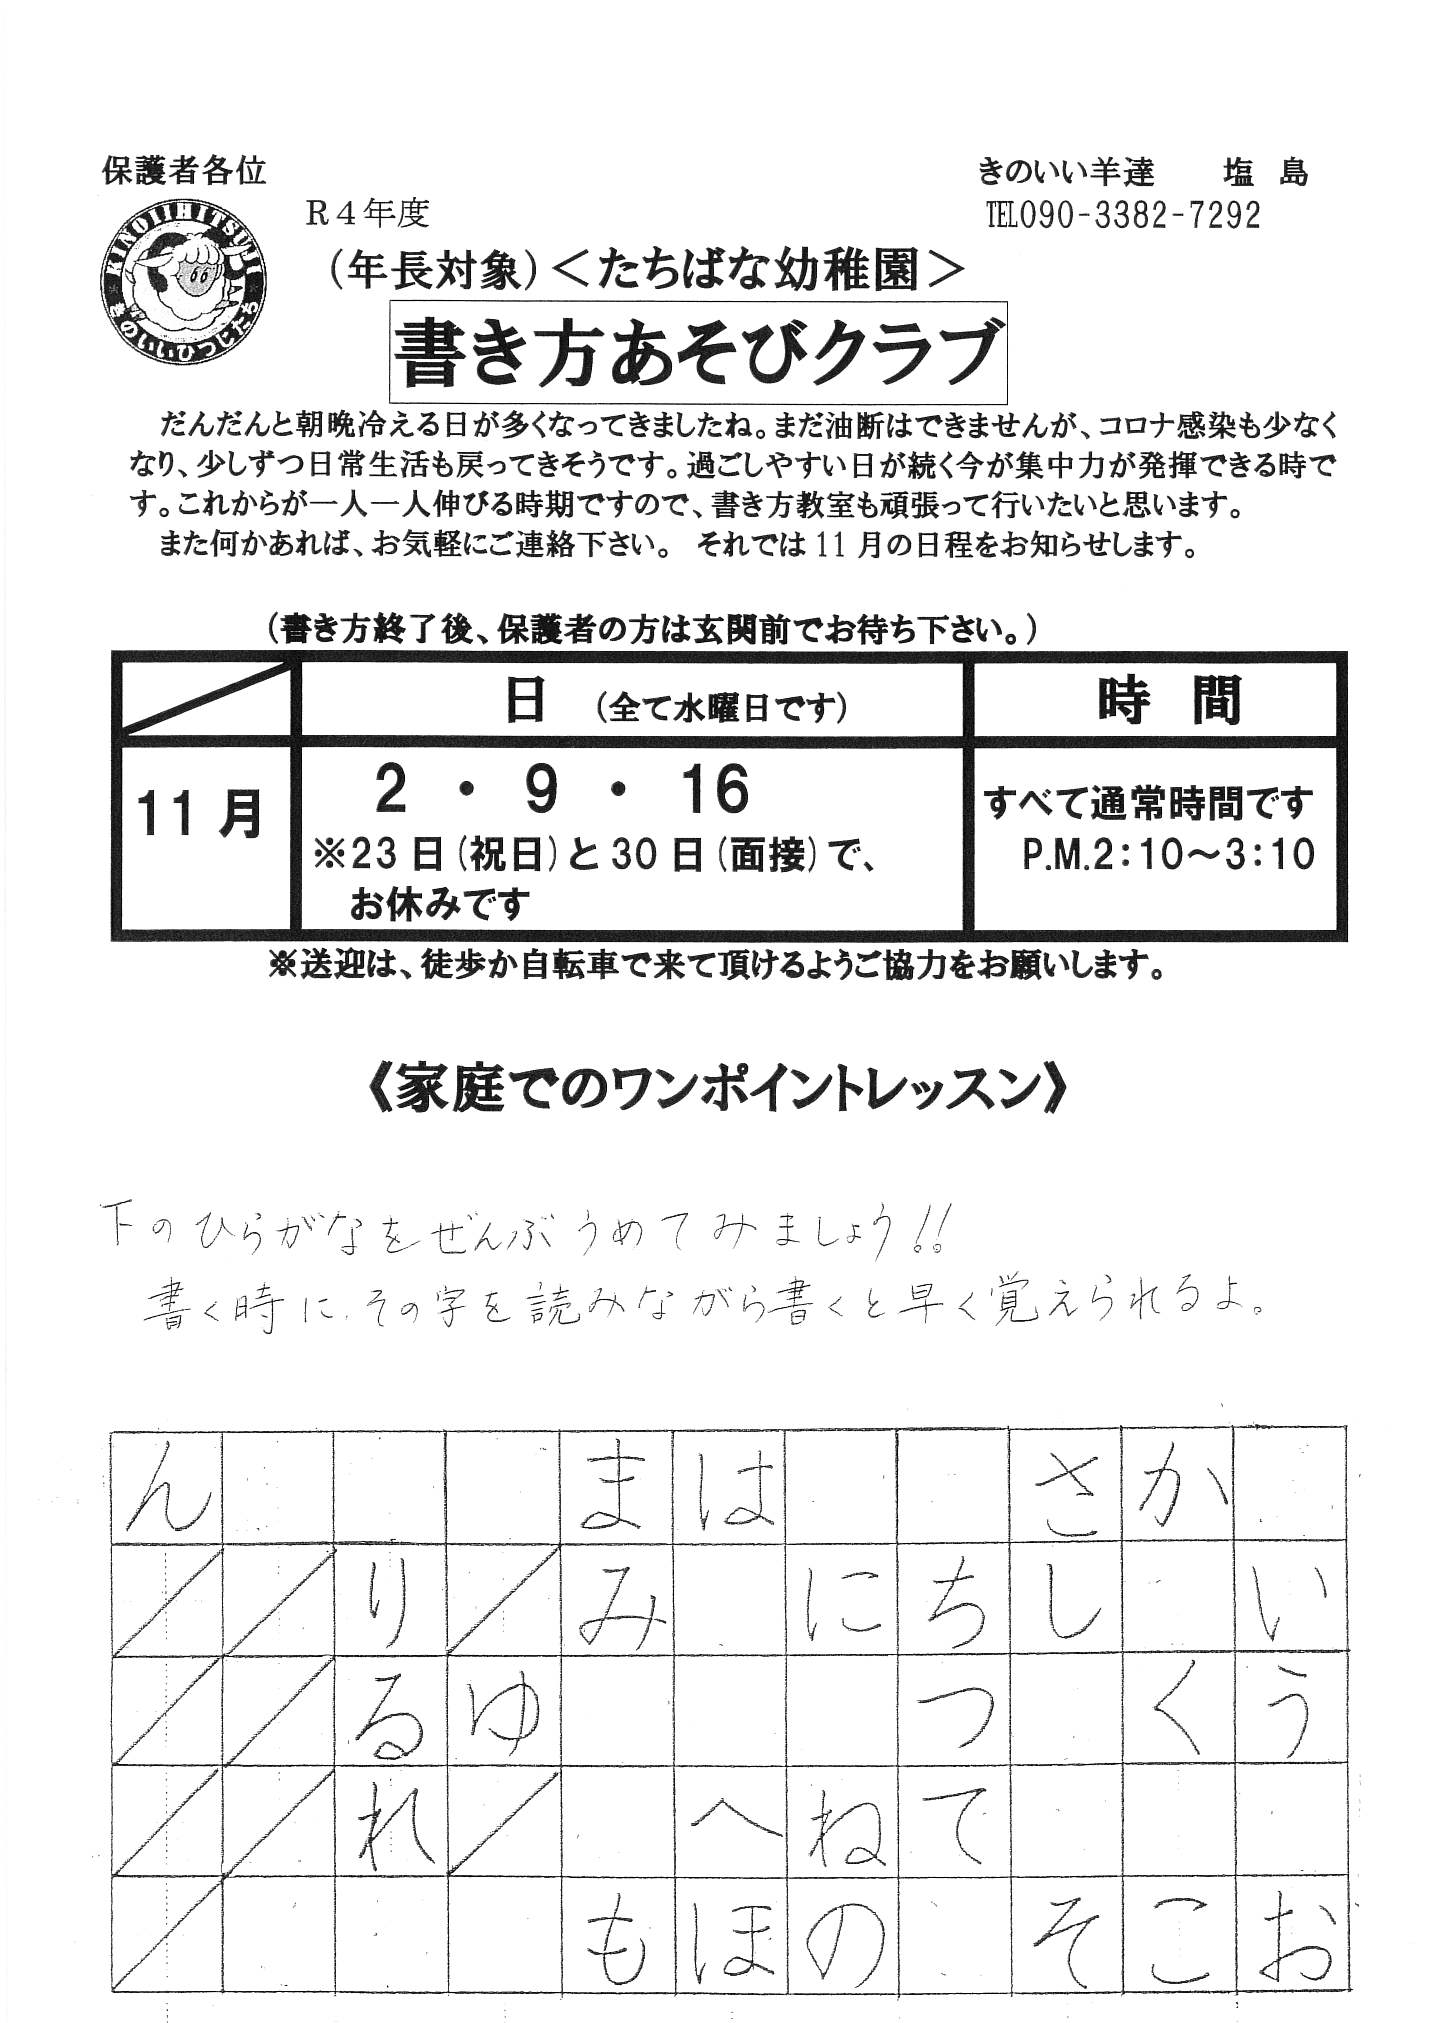 保護者各位
きのいい羊達 塩 島
R４年度
℡090-3382-7292
KINOIIHITSUJI
きのいいひつじたち
（年長対象）＜たちばな幼稚園＞
書き方あそびクラブ
だんだんと朝晩冷える日が多くなってきましたね。まだ油断はできませんが、コロナ感染も少なく
なり、少しずつ日常生活も戻ってきそうです。過ごしやすい日が続く今が集中力が発揮できる時で
す。これからが一人一人伸びる時期ですので、書き方教室も頑張って行いたいと思います。
また何かあれば、お気軽にご連絡下さい。 それでは 11 月の日程をお知らせします。
（書き方終了後、保護者の方は玄関前でお待ち下さい。）
日 （全て水曜日です） 時 間
11 月
2 ・ 9 ・ 16
※23 日（祝日）と 30 日（面接）で、
お休みです
すべて通常時間です
P.M.2：10～3：10
※送迎は、徒歩か自転車で来て頂けるようご協力をお願いします。
《家庭でのワンポイントレッスン》
下のひらがなをぜんぶうめてみましょう!!
書く時に、その字を読みながら書くと早く覚えられるよ。
ん ま は さ か
り み に ち し い
る ゆ つ く う
れ へ ね て
も ほ の そ こ お